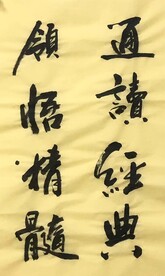 通讀經典
領悟精髓